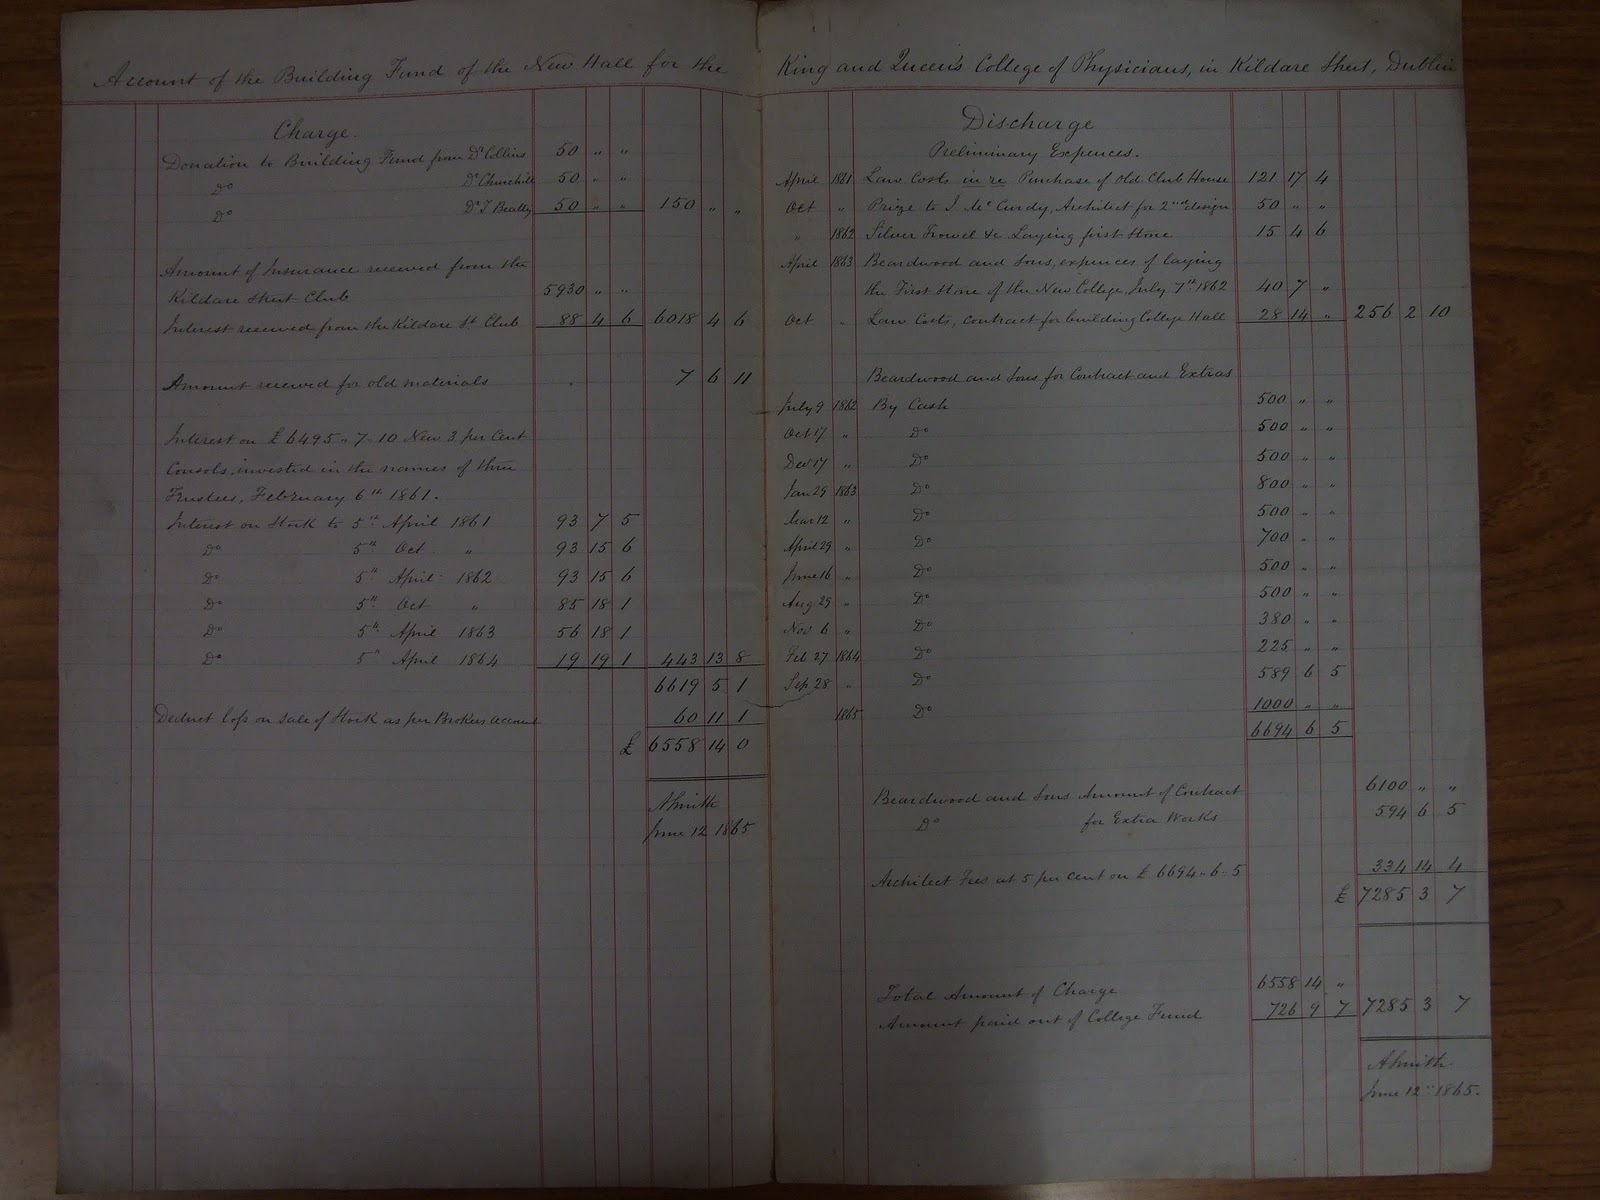 Account of the Building Fund of the New Hall for the King and Queen's College of Physicians, in Kildare Street, Dublin
Charge.
Donation to Building Fund from Dr Collins 50 " "
Do Dr Churchill 50 " "
Do Dr T Beatty 50 " " 150 " "
Amount of Insurance received from the
Kildare Street Club 5930 " "
Interest received from the Kildare St Club 88 4 6 6018 4 6
Amount received for old materials 7 6 11
Interest on £6495 " 7 - 10 New 3 per Cent
Consols, invested in the names of three
Trustees, February 6th 1861.
Interest on Stock to 5th April 1861 93 7 5
Do 5th Oct " 93 15 6
Do 5th April 1862 93 15 6
Do 5th Oct " 85 18 1
Do 5th April 1863 56 18 1
Do 5th April 1864 19 19 1 443 13 8
6619 5 1
Deduct loss on sale of Stock as per Brokers account 60 11 1
£ 6558 14 0
ASmith
June 12 1865
Discharge
Preliminary Expences.
April 1861 Law Costs in re Purchase of Old Club House 121 17 4
Oct " Prize to J. McCurdy, Architect for 2nd design 50 " "
" 1862 Silver Trowel &c Laying first Stone 15 4 6
April 1863 Beardwood and Sons, expences of laying
the First Stone of the New College, July 7th 1862 40 7 "
Oct " Law Costs, contract for building College Hall 28 14 " 256 2 10
Beardwood and Sons for Contract and Extras
July 9 1862 By Cash 500 " "
Oct 17 " Do 500 " "
Dec 17 " Do 500 " "
Jan 29 1863 Do 800 " "
Mar 12 " Do 500 " "
April 29 " Do 700 " "
June 16 " Do 500 " "
Aug 29 " Do 500 " "
Nov 6 " Do 380 " "
Feb 27 1864 Do 225 " "
Sep 28 " Do 589 6 5
1865 Do 1000 " "
6694 6 5
Beardwood and Sons Amount of Contract 6100 " "
Do for Extra Works 594 6 5
Architect Fees at 5 per cent on £6694 " 6 - 5 334 14 4
£ 7285 3 7
Total Amount of Charge 6558 14 "
Amount paid out of College Fund 726 9 7 7285 3 7
ASmith
June 12th 1865.